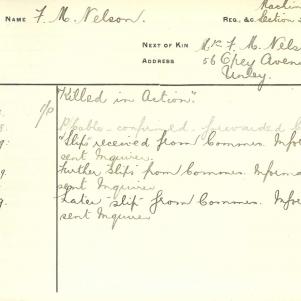 Machin
NAME F. M. Nelson. REG., &c. Section
NEXT OF KIN Mrs F. M. Nels
ADDRESS 56 Opey Avenu
Unley.
"Killed in Action".
confirmed forwarded
"Slip" received from Commes. Info
sent Inquirer.
Further "Slip" from Commes. Informa
sent Inquirer
Later "slip" from Commes. Inf
sent Inquirer